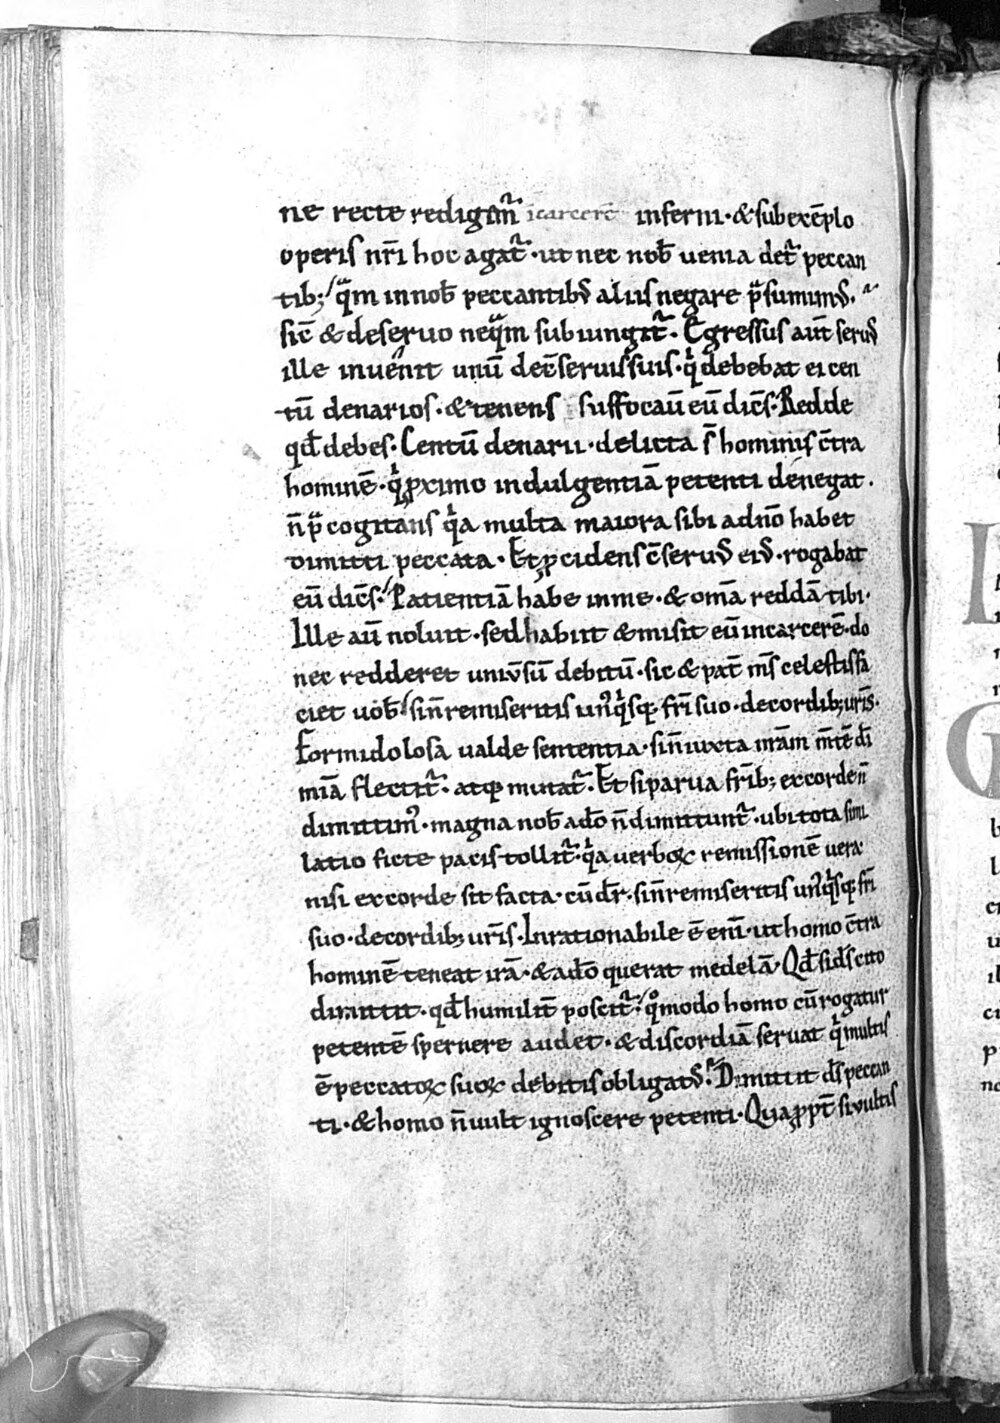 ne recte redigam̃ ĩcarcerẽ inferni · & sub exẽplo
operis nr̃i hoc agat᷑ · ut nec nob̃ uenia det᷑ peccan
tib; quam in nob̃ peccantibꝰ aliis negare p̃sumimꝰ ·
sic̃ & de seruo nequam subiungit᷑ · Egressus aut̃ seruꝰ
ille inuenit unũ de c̃seruis suis · qui debebat ei cen
tũ denarios · & tenens suffocau̅ eũ dic̃s · Redde
qd̃ debes · Centũ denarii · delicta s̃ hominis c̃tra
hominẽ · qui ꝓximo indulgentiã petenti denegat ·
ñ p̃cogitans quia multa maiora sibi a dño habet
dimitti peccata · Et ꝓcidens c̃seruꝰ eiꝰ · rogabat
eũ dic̃s · Patientiã habe in me · & om̃a reddã tibi ·
Ille au̅ noluit · sed habiit & misit eũ in carcerẽ · do
nec redderet uniuersũ debitũ · sic & pat̃ m̃s celestis fa
ciet uob̃ · si ñ remiseritis unꝰquisqꝫ fr̃i suo · de cordib; ur̃is ·
Formidolosa ualde sententia · si ñ iuxta ir̃am m̃tẽ di
miã flectit᷑ · atqꝫ mutat᷑ · Et si parua fr̃ib; ex corde ñ
dimittimꝰ · magna nob̃ a dõ ñ dimittunt᷑ · ubi tota simi
latio ficte pacis tollit᷑ · quia uerboꝝ remissionẽ uera
nisi ex corde sit facta · cũ dr̃ · si ñ remiseritis unꝰquisqꝫ fr̃i
suo · de cordib; ur̃is · Inrationabile ẽ enĩ · ut homo c̃tra
hominẽ teneat irã · & a dõ querat medelã · Qd̃ si d̃s cito
dimittit · qd̃ humilit̃ poscit᷑ · quomodo homo cũ rogatur
petentẽ spernere audet · & discordiã seruat qui multis
ẽ peccatoꝝ suoꝝ debitis obligatꝰ · Dimittit d̃s peccan
ti · & homo ñ uult ignoscere petenti · Quaꝓpt̃ si uultis